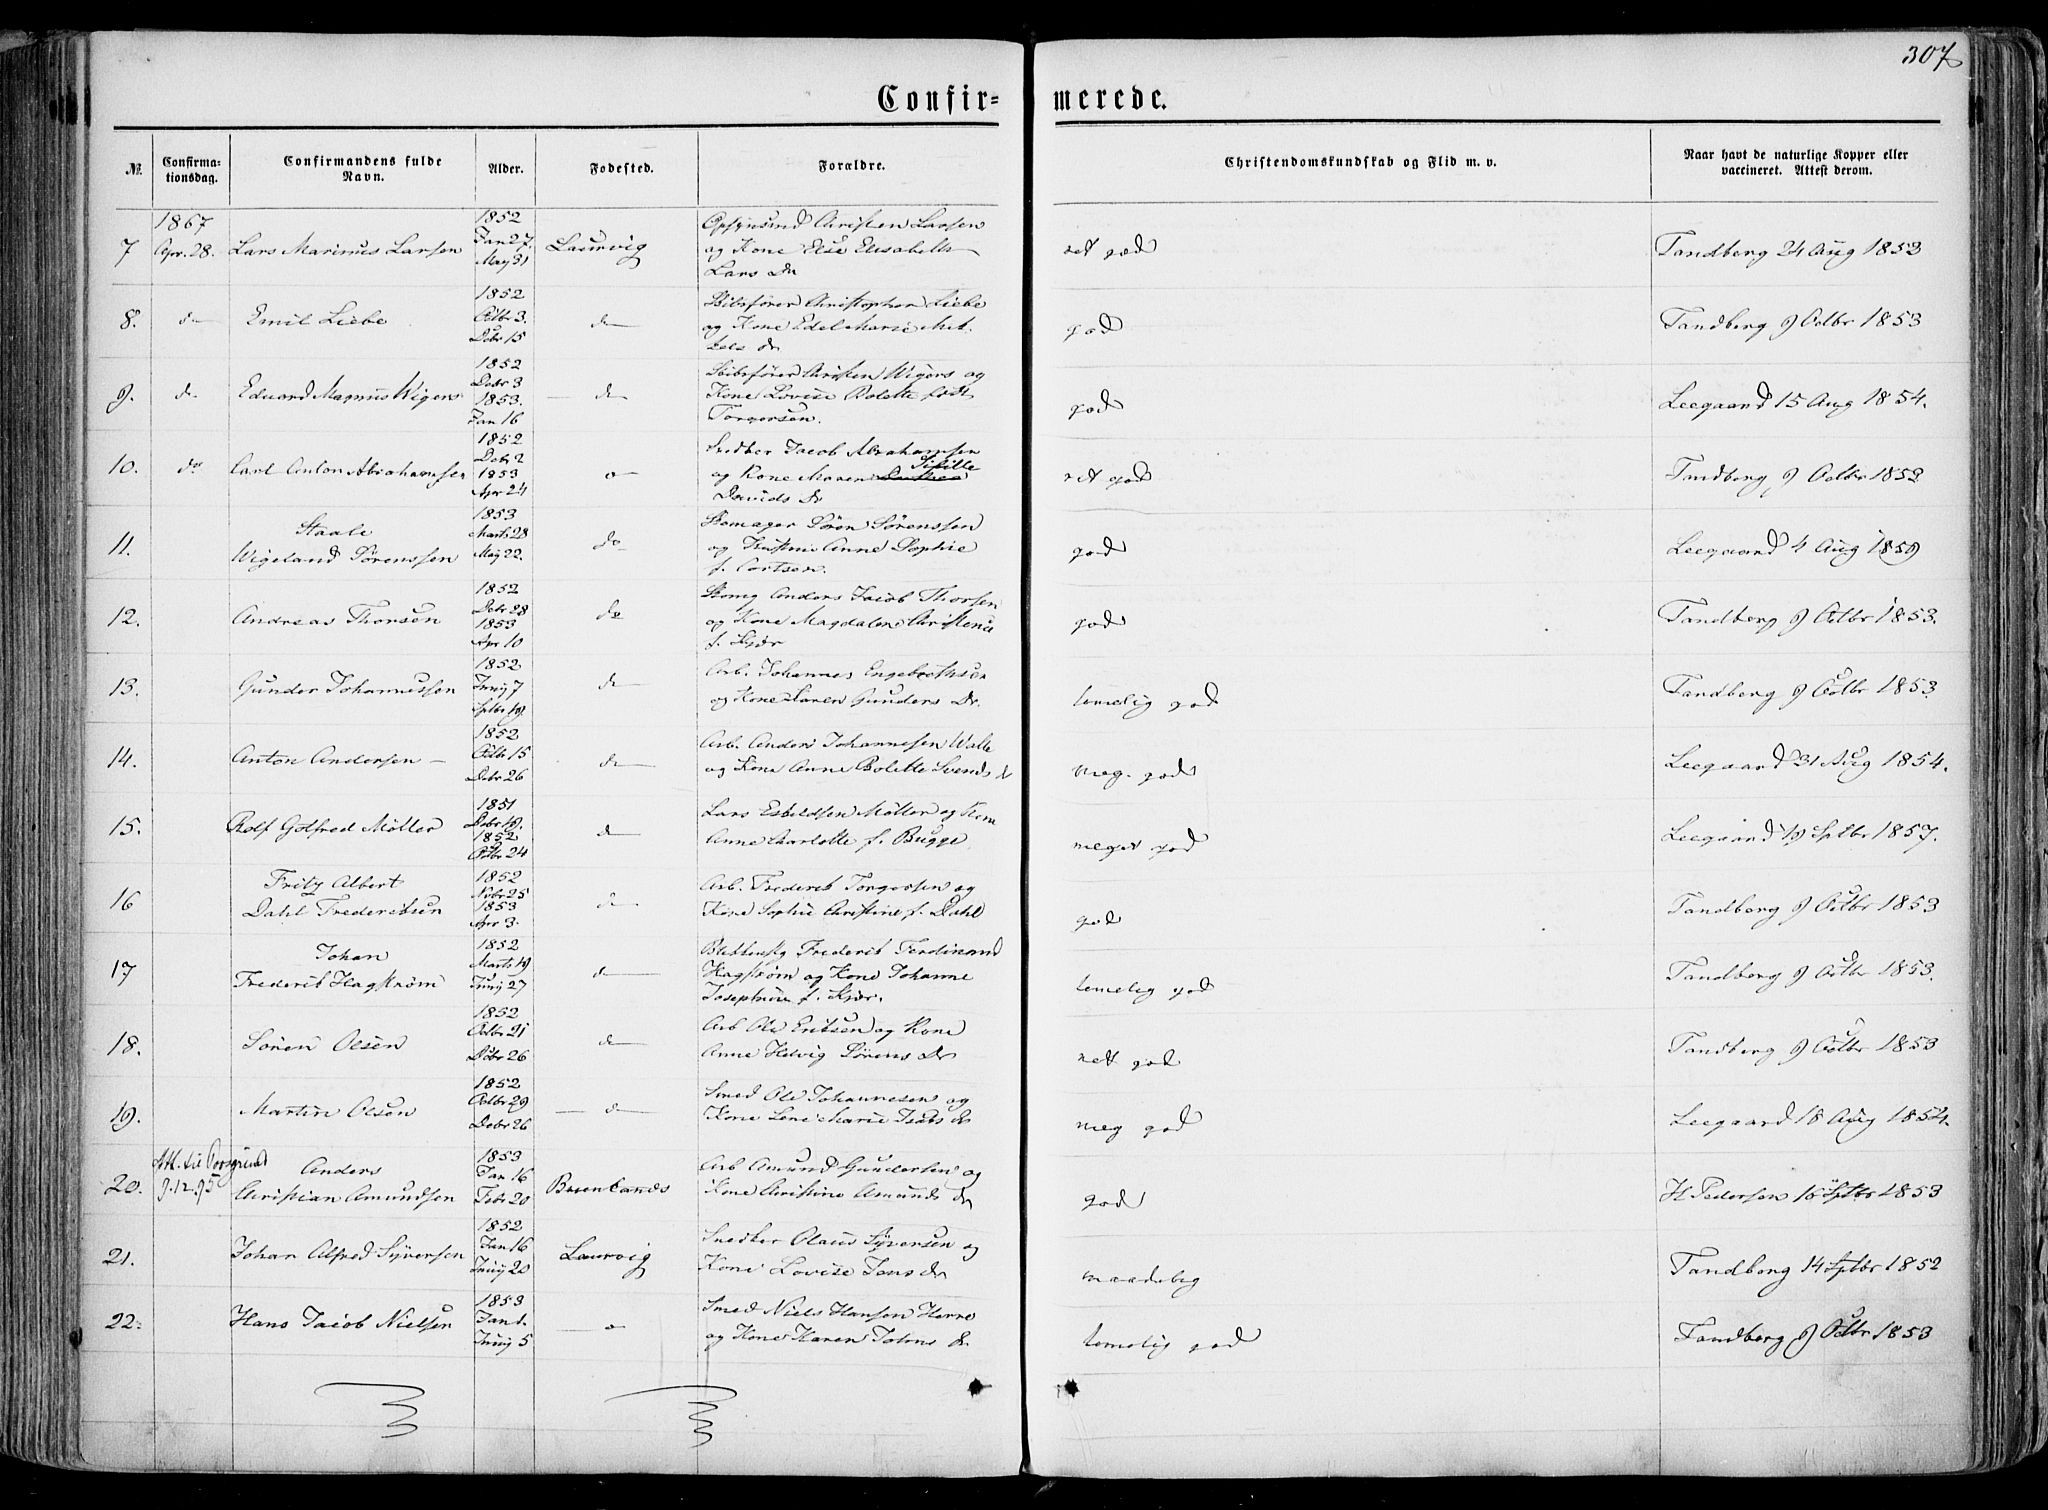 307
Confir- merede.
№ Confirma- tionsdag. Confirmandens fulde Navn. Alder. Fodested. Forældre. Christendomskundskab og Flid m. v. Naar havt de naturlige Kopper eller vaccineret. Attest derom.
1867 1852 Opsynsmd Christen Lassen
7 Apr. 28. Lars Marinus Larsen Jan 27. Laurvig og Kone Else Elisabeth ret god Tandberg 24 Aug 1853
May 31 Lars Dr
1852 Skibsfører Christopher Liebe
8. do Emil Liebe Octbr 3. do og Kone Edel Marie god Tandberg 9 Octbr 1853
Debr 15 dr
1852 Skibsfører Christen Wigers og
Debr 3
9. do Eduard Magnus Wigers 1853. do Kone Lovise Bolette født god Leegaard 15 Aug 1854.
Jan 16 Torgersen.
1852 Snedker Jacob Abrahamsen
Debr 2
10. do Carl Anton Abrahamsen 1853 o og Kone Maren Sisille ret god Tandberg 9 Octbr 1853
Apr 24 Davids Dr
1853 Skomager Søren Sørenssen
Staale Marts 28
11. Wigeland Sørenssen May 22. do og Anne Sophie god Leegaard 4 Aug 1859
f. Cortsen.
1852 Skomg Anders Jacob Thorsen
Debr 28
12. Andreas Thorsen 1853 do og Kone Magdalene Christence god Tandberg 9 Octbr 1853.
Apr 10 f. Kjær
1852 Arb. Johannes Engebrethsen
13. Gunder Johannessen Juny 7 do og Kone Maren Gunders Dr. temelig god Tandberg 9 Octbr 1853.
Sptbr 19.
1852 Arb. Anders Johannesen Walle
14. Anton Andersen Octbr 15 do og Kone Anne Bolette Svends d meg. god Leegaard 31 Aug 1854.
Debr 26
1851 Lars Eskildsen Møller og Kone
15. Rolf Gotfred Møller Debr 19. do Anne Charlotte f. Bugge meget god Leegaard 19 Sptbr 1857.
1852
Octbr 24
Fritz Albert 1852 Arb. Frederik Torgersen og
Nvbr 25
16 Dahl Frederiksen 1853 do Kone Sophie Christine f. Dahl god Tandberg 9 Octbr 1853
Apr 3.
Johan 1852 Frederik Ferdinand
17 Frederik Hagstrøm Marts 19 do Hagstrøm og Kone Johanne temelig god Tandberg 9 Octbr 1853.
Juny 27 Josephine f. Kjær.
1852 Arb Ole Eriksen og Kone
18. Søren Olsen Octbr 21 do Anne Helvig Sørens Dr ret god Tandberg 9 Octbr 1853
Debr 26
1852 Smed Ole Johannesen og
19. Martin Olsen Octbr 29 do Kone Lene Marie Isaks dr meg god Leegaard 18 Aug 1854.
Debr 26
Att. til Porsgrund Anders 1853 Arb Amund Gundersen og
20. 9.12.95 Christian Amundsen Jan 16 Brunlanæs Kone Christine Amunds dr god H Pedersen 16 Sptbr 1853
Febr 20
1852 Snedker Olaus Syversen og
21. Johan Alfred Syversen Jan 16 Laurvig Kone Lovise Jens dr maadelig Tandberg 14 Sptbr 1852
Juny 20
1853 Smed Niels Hansen Herre
22. Hans Jacob Nielsen Jan 1. o og Kone Karen Johns dr. temelig god Tandberg 9 Octbr 1853
Juny 5